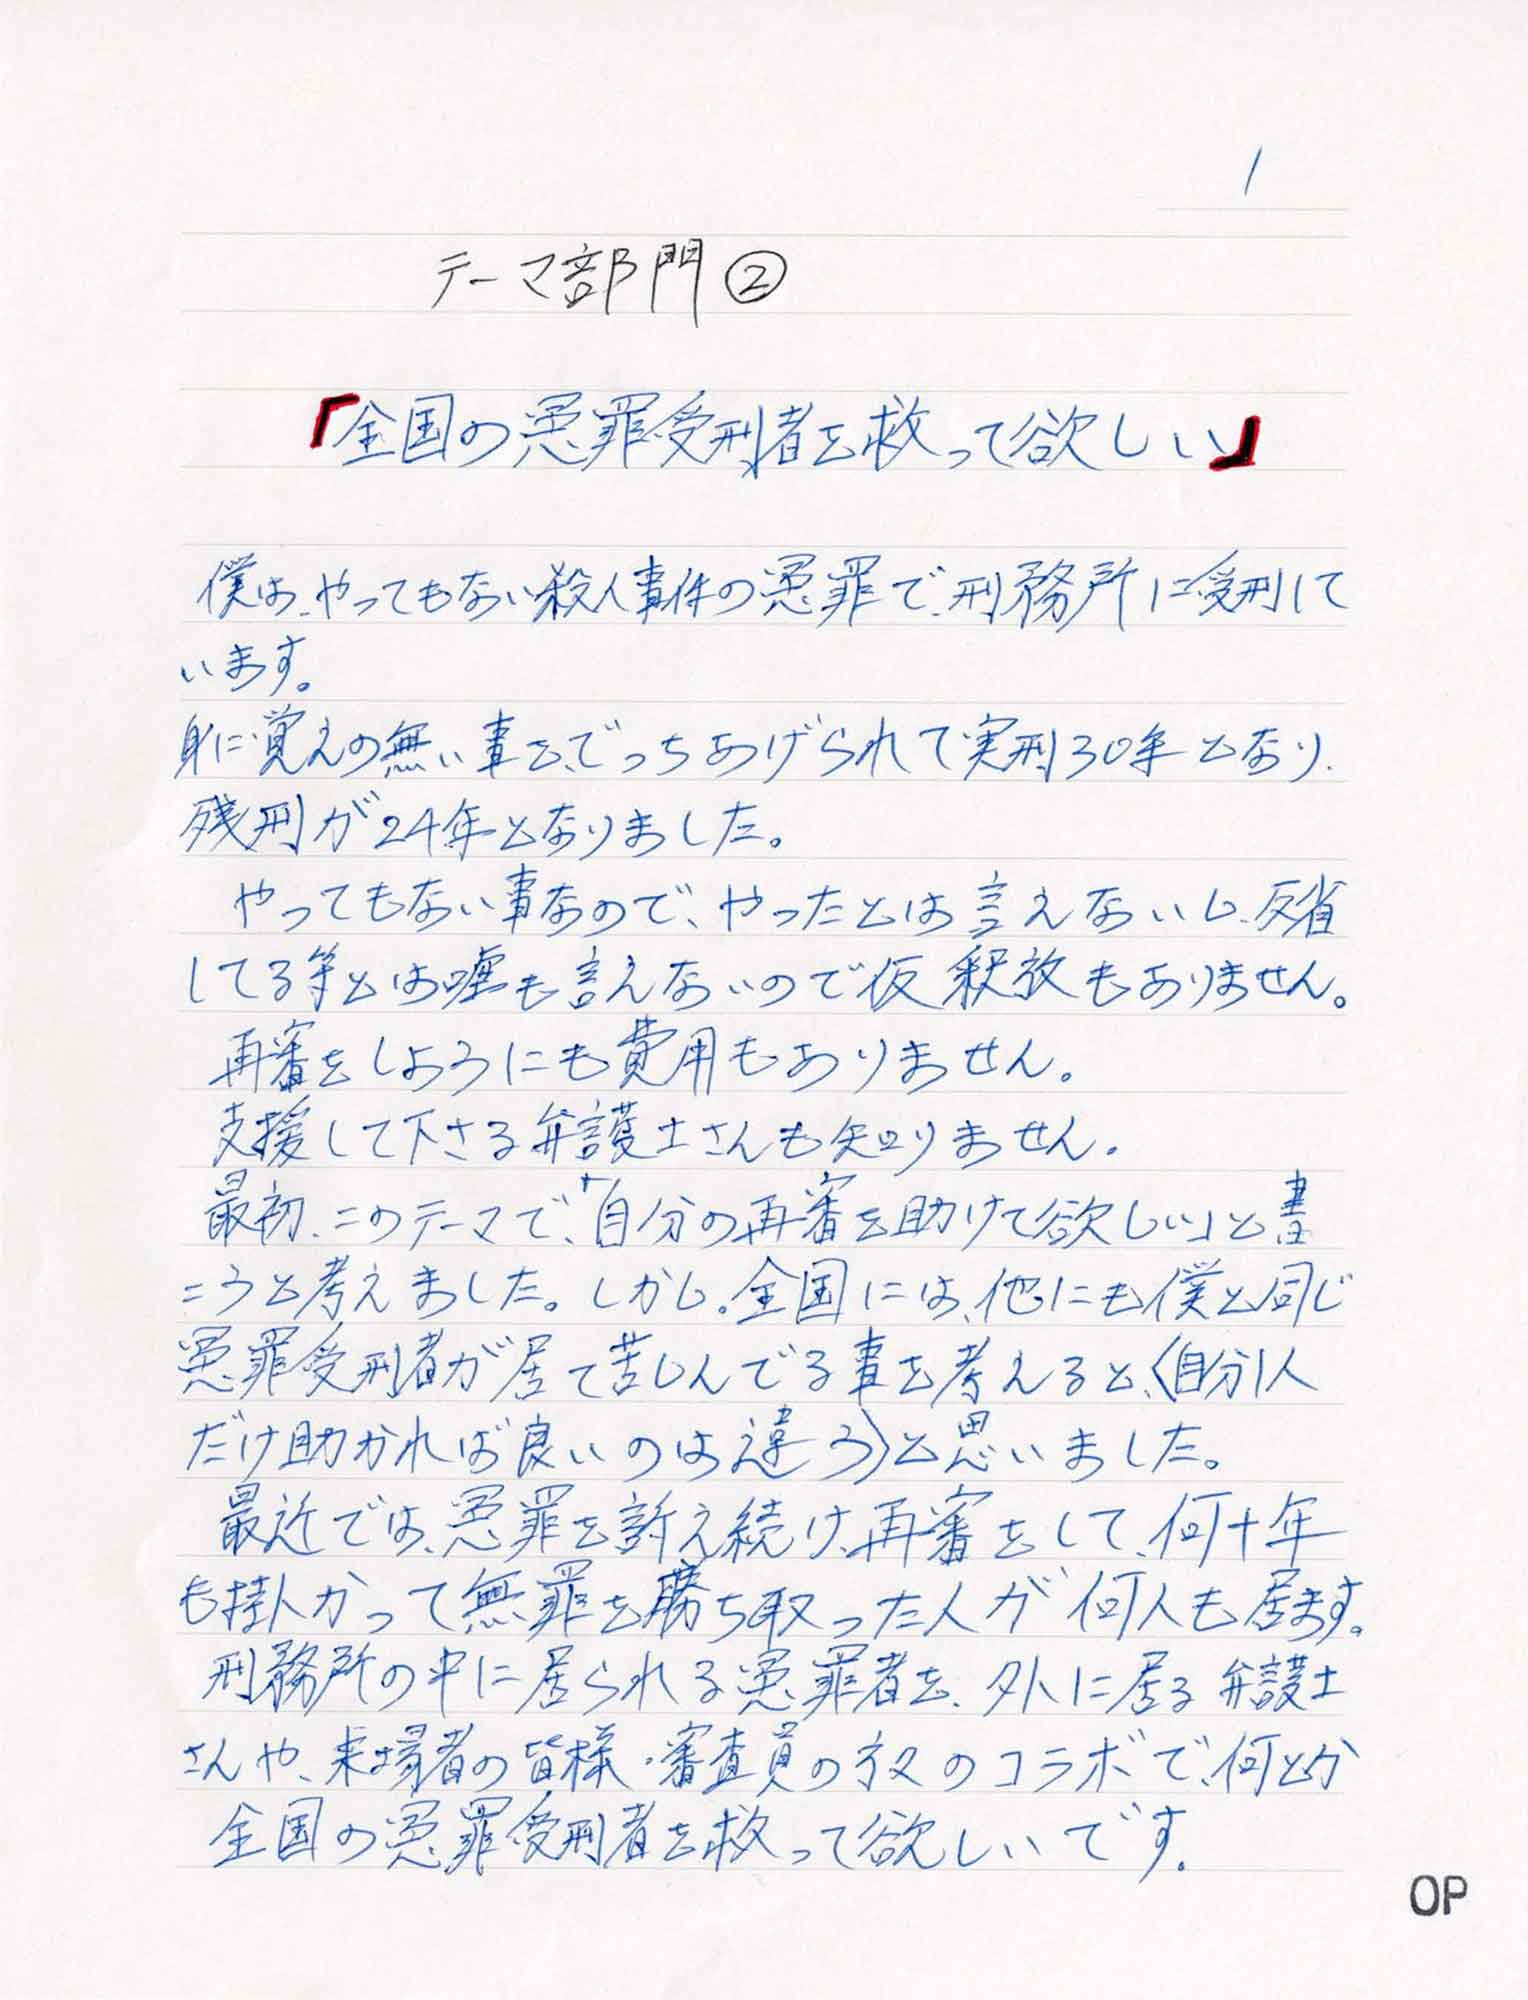 1
テーマ部門②
「全国の冤罪受刑者を救って欲しい」
僕は、やってもない殺人事件の冤罪で、刑務所に受刑して
います。
身に覚えの無い事を、でっちあげられて実刑30年となり、
残刑が24年となりました。
やってもない事なので、やったとは言えないし、反省
してる等とは嘘も言えないので仮釈放もありません。
再審をしようにも費用もありません。
支援して下さる弁護士さんも知りません。
最初、このテーマで、「自分の再審を助けて欲しい」と書
こうと考えました。しかし、全国には、他にも僕と同じ
冤罪受刑者が居て苦しんでる事を考えると、〈自分1人
だけ助かれば良いのは違う〉と思いました。
最近では、冤罪を訴え続け、再審をして、何十年
も掛かって無罪を勝ち取った人が何人も居ます。
刑務所の中に居られる冤罪者を、外に居る弁護士
さんや、来場者の皆様・審査員の方々のコラボで、何とか
全国の冤罪受刑者を救って欲しいです。
OP